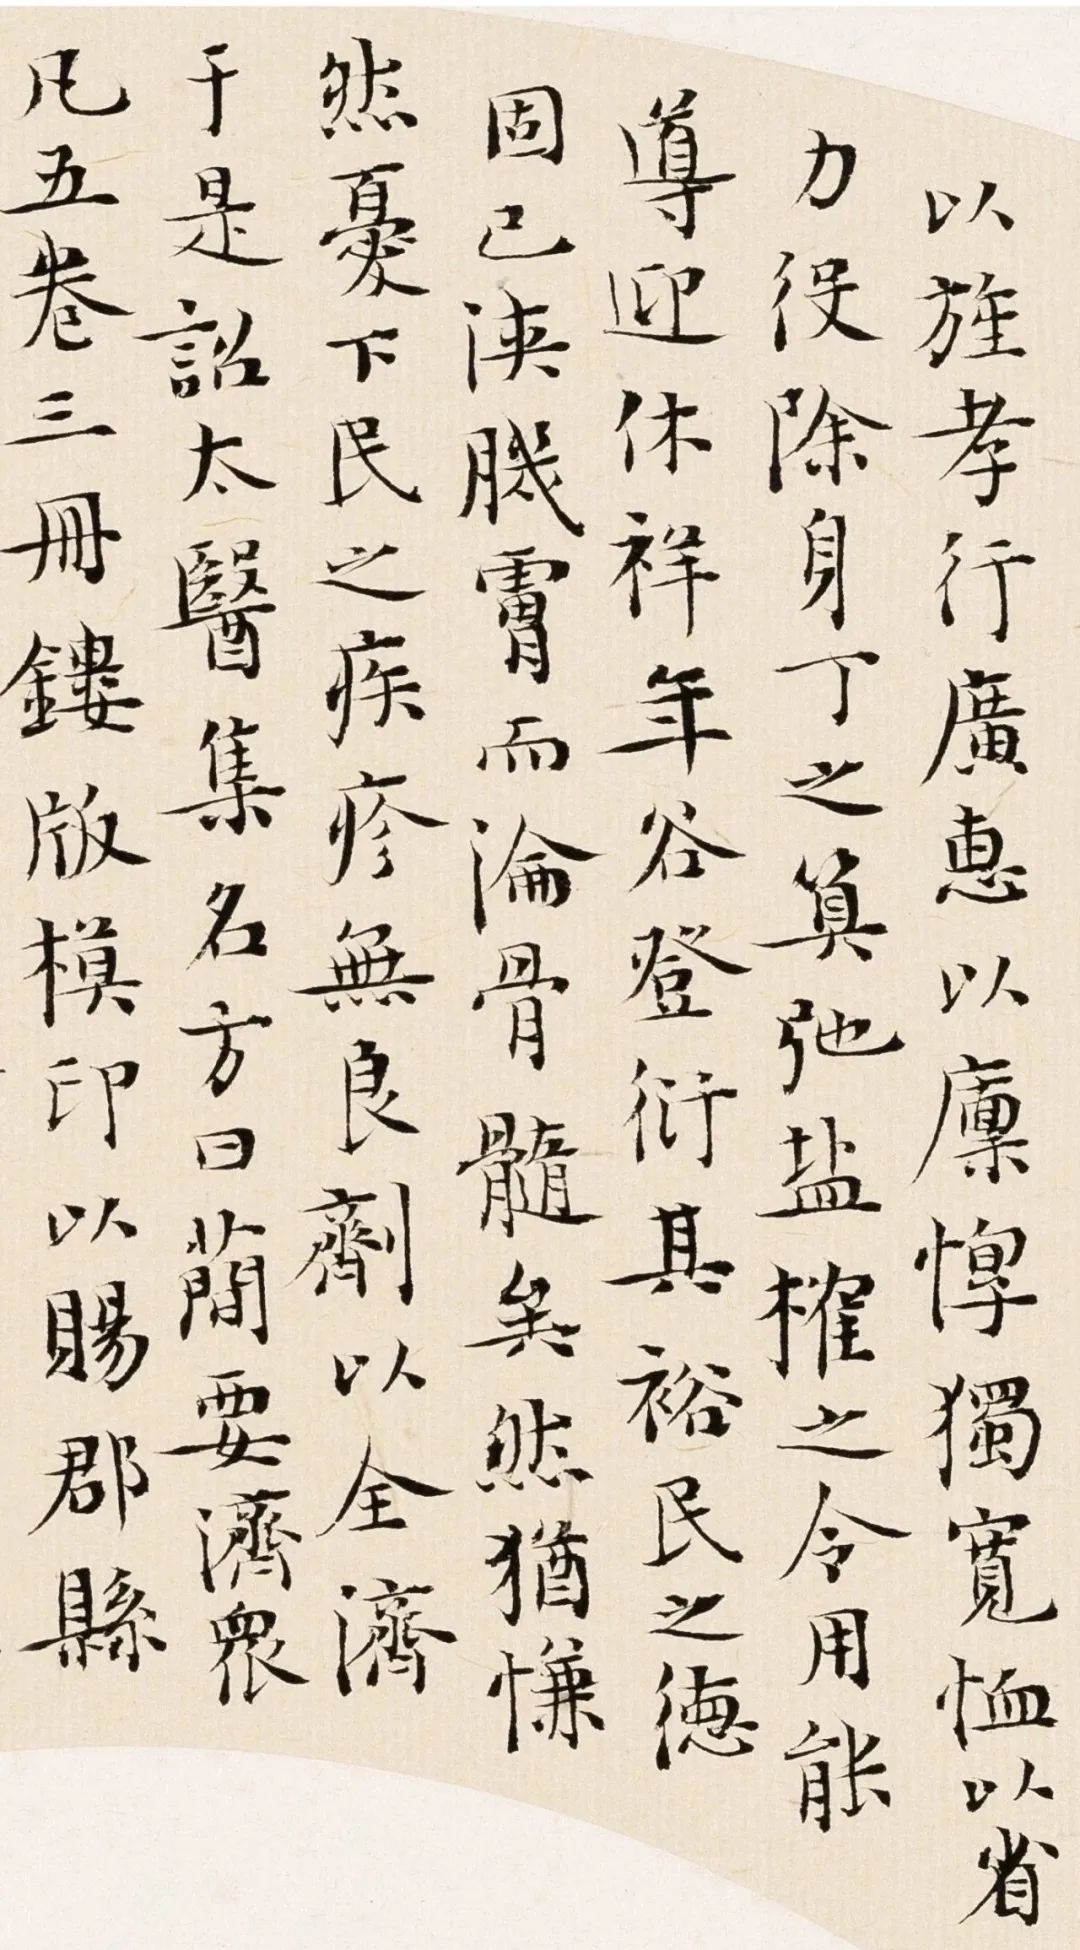 以旌孝行廣惠以廩惸獨寬恤以省
力役除身丁之筭弛盐榷之令用能
導迎休祥年谷登衍其裕民之德
固已浹肌膚而淪骨髓矣然猶慊
然憂下民之疾疹無良劑以全濟
于是詔太醫集名方曰蕳要濟衆
凡五卷三冊鏤版模印以賜郡縣